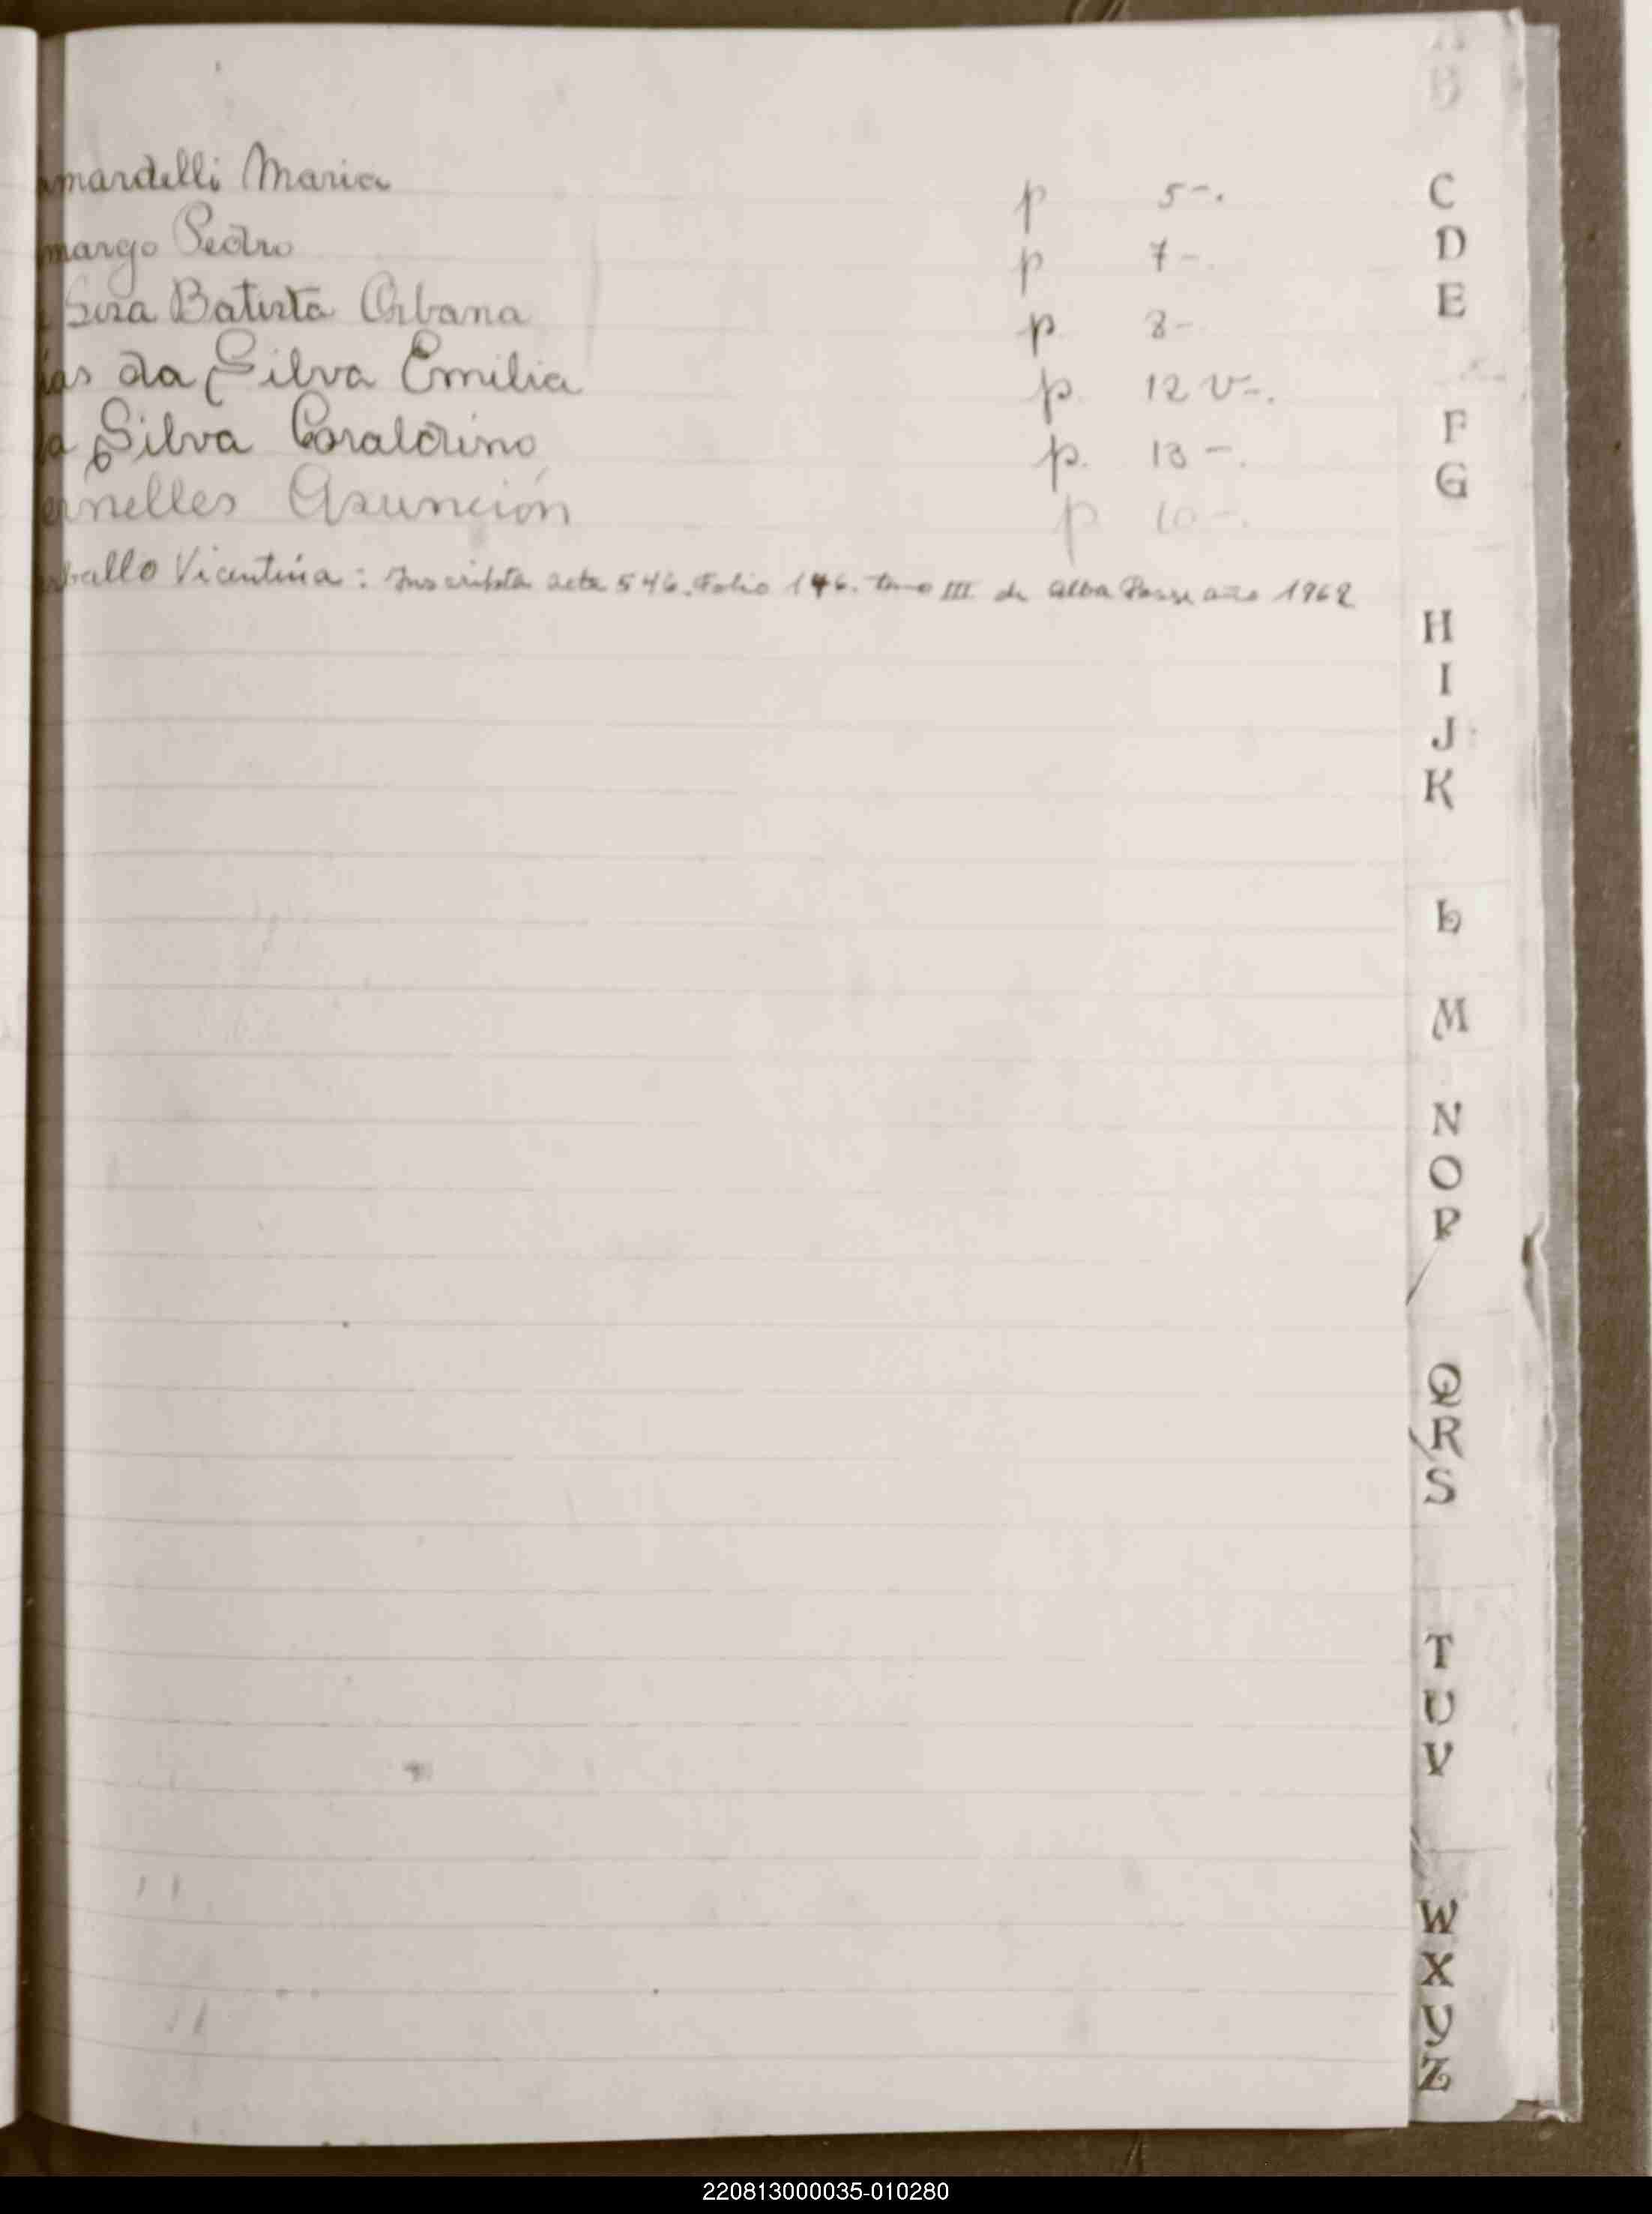 mardelli Maria p 5-.
margo Pedro p 7-
Batista Orbana p 8-
ias da Silva Emilia p. 12 V-.
a Silva Coraldino p. 13-.
ernelles Asunción p 10-.
rballo Vicentina: Inscripta acta 546. Folio 146. tomo III de Alba Posse año 1962
B
C
D
E
F
G
H
I
J
K
L
M
N
O
P
Q
R
S
T
U
V
W
X
Y
Z
220813000035-010280